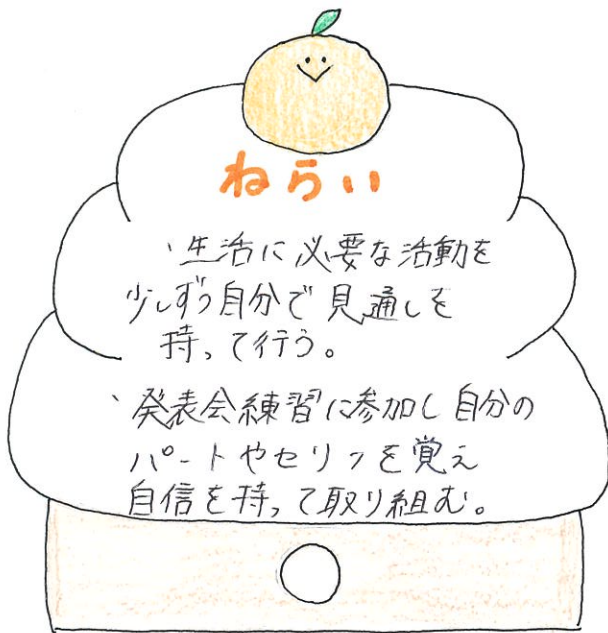 ねらい
・生活に必要な活動を
少しずつ自分で見通しを
持って行う。
・発表会練習に参加し自分の
パートやセリフを覚え
自信を持って取り組む。